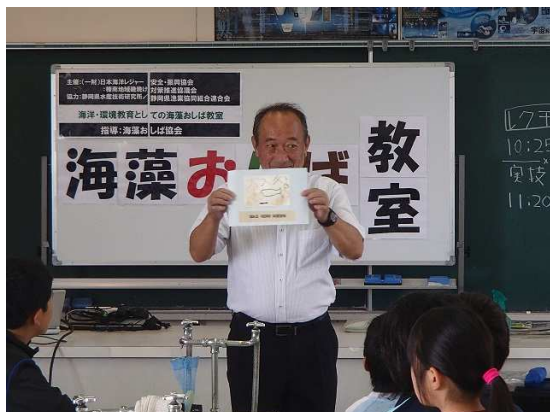 主催:(一財)日本海洋レジャー安全・振興協会
協力:静岡県水産技術研究所/静岡県漁業協同組合連合会
海洋・環境教育としての海藻おしば教室
指導:海藻おしば協会
海藻お ば
教室
10:25
実技
11:20